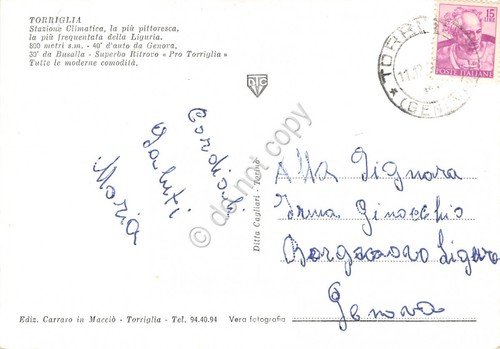 TORRIGLIA
Stazione Climatica, la più pittoresca,
la più frequentata della Liguria.
800 metri s.m. - 40' d'auto da Genova,
30' da Busalla - Superbo Ritrovo « Pro Torriglia »
Tutte le moderne comodità.
15
POSTE ITALIANE
Cordiali
Saluti
Maria
do not copy
Ditta Cagliari - Torino
Alla Signora
Irma Ginocchio
Borgonovo Ligure
Genova
Ediz. Carraro in Macciò - Torriglia - Tel. 94.40.94
Vera fotografia